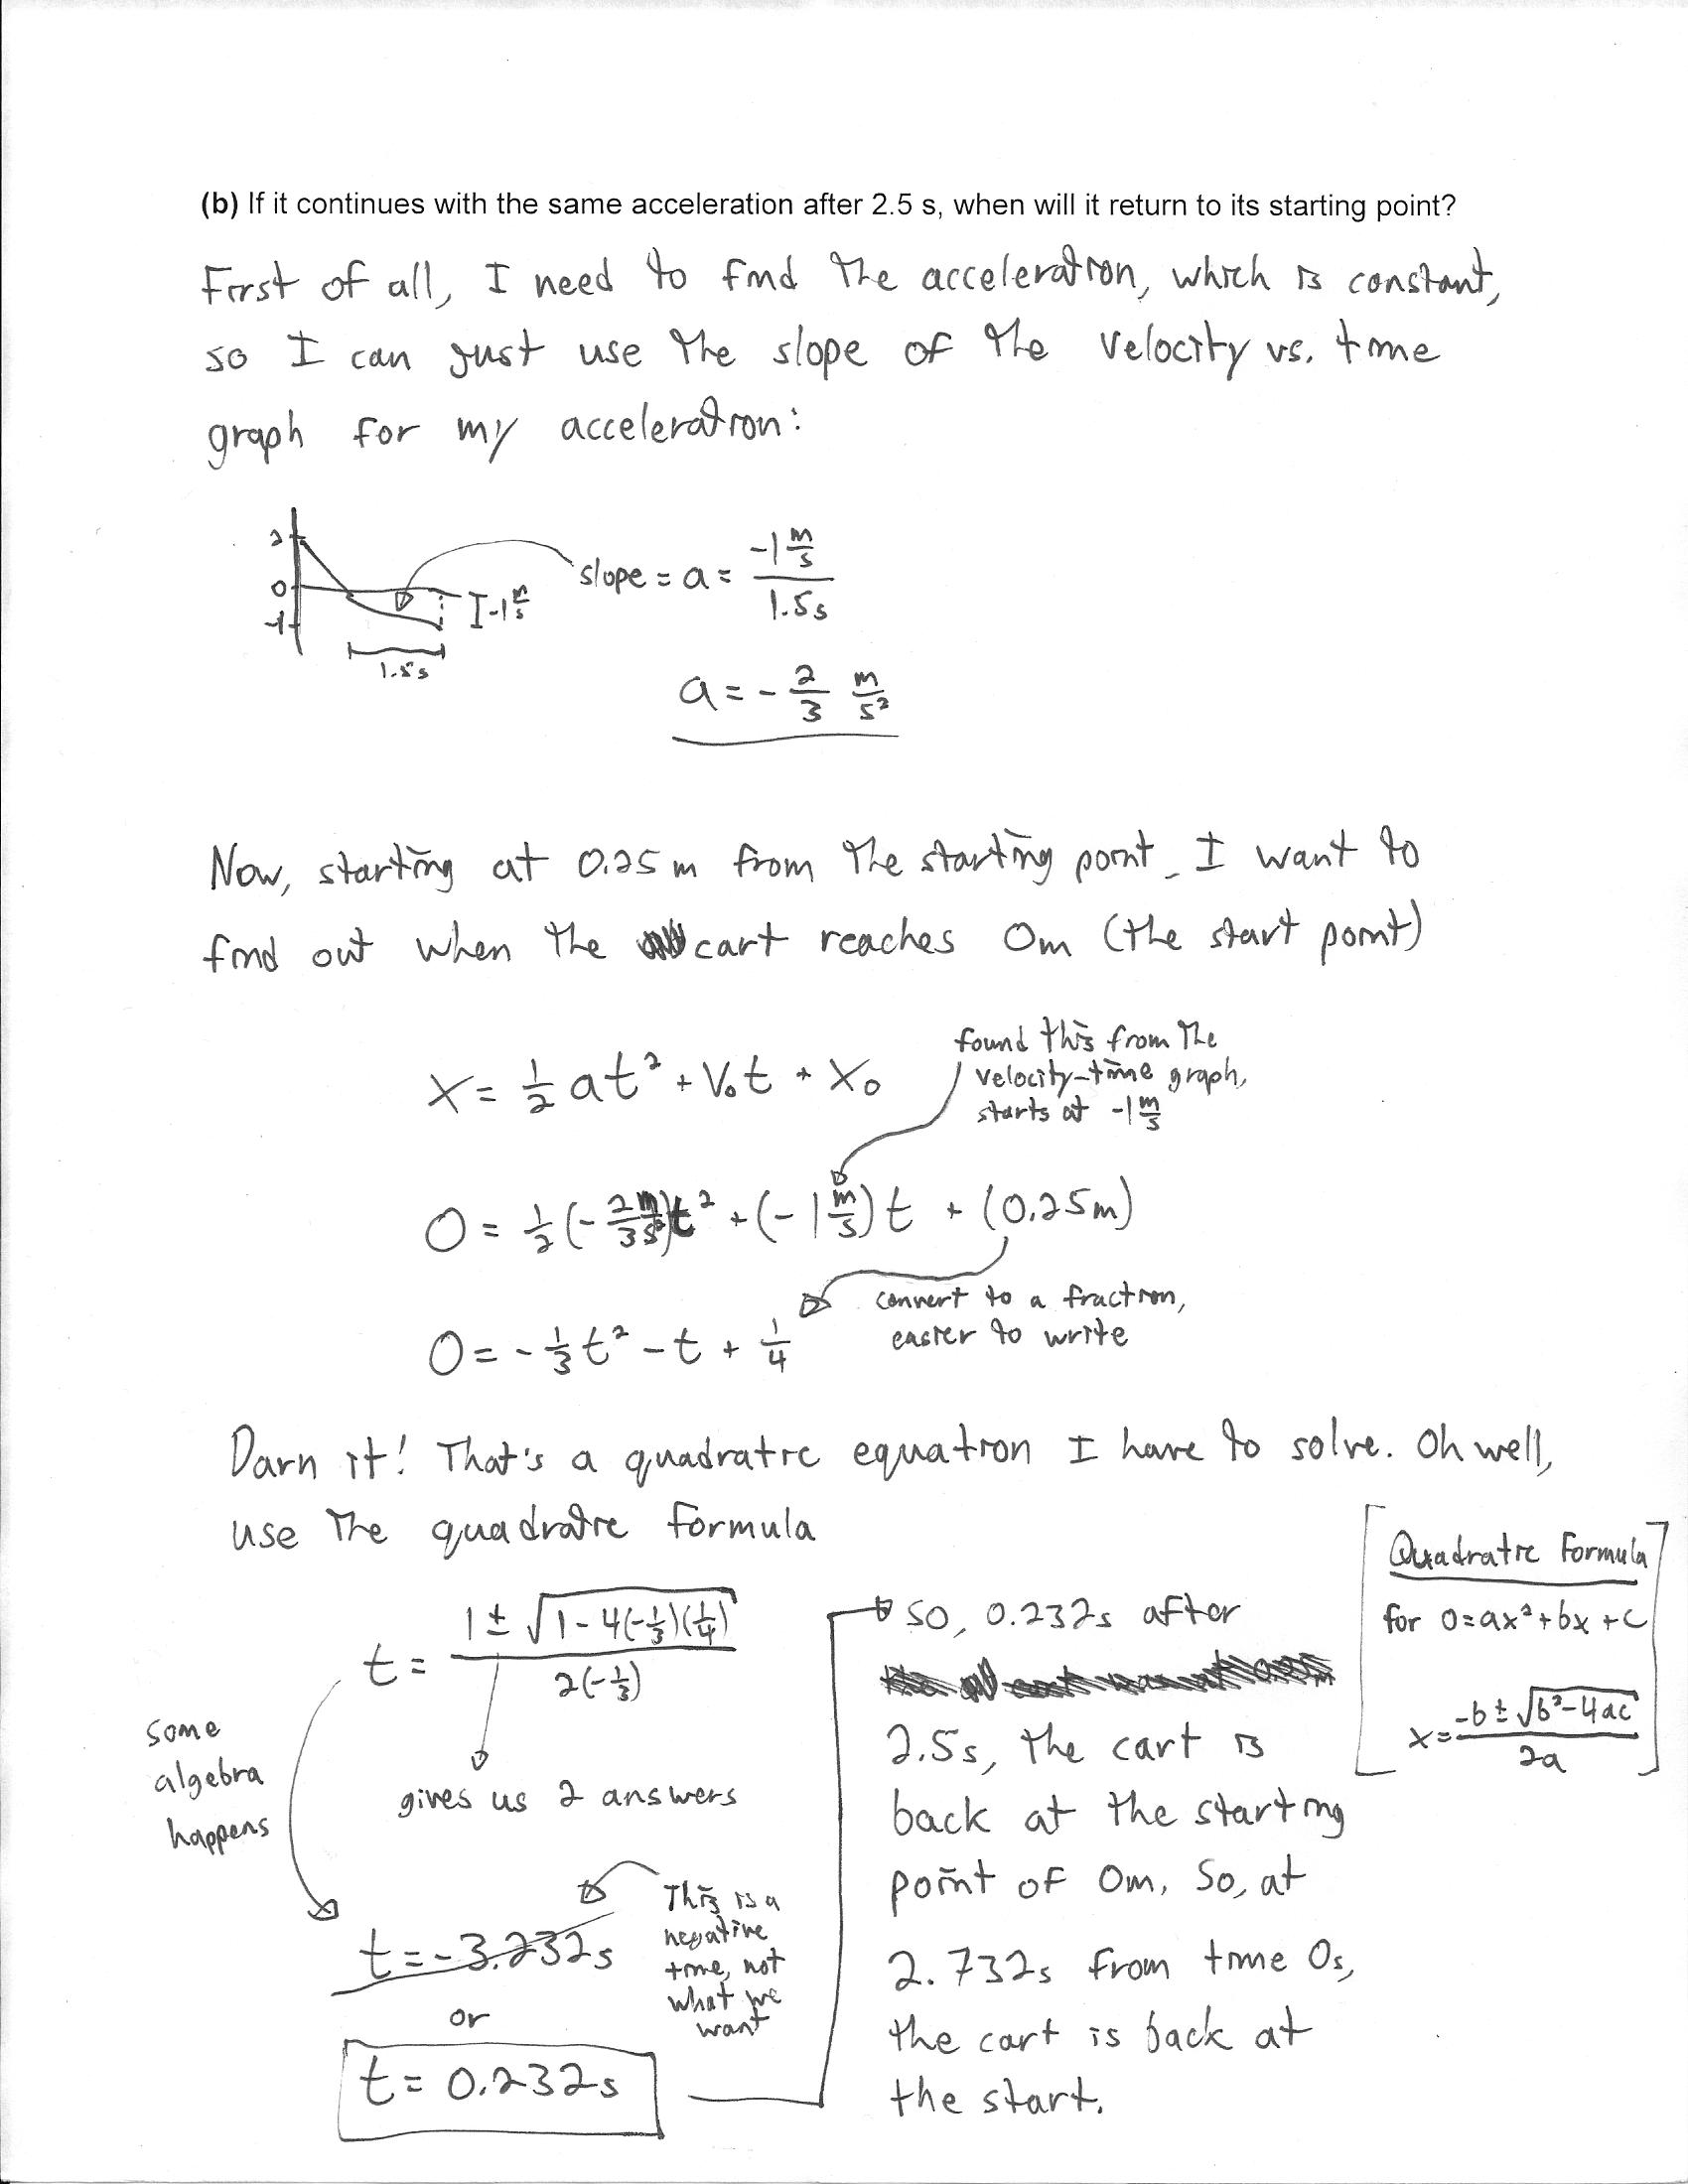 (b) If it continues with the same acceleration after 2.5 s, when will it return to its starting point?
First of all, I need to find the acceleration, which is constant,
so I can just use the slope of the velocity vs. time
graph for my acceleration:
2
0
-1
-1 m/s
1.5s
slope = a = -1 m/s / 1.5s
a = -2/3 m/s²
Now, starting at 0.25m from the starting point, I want to
find out when the cart reaches 0m (the start point)
x = 1/2 at² + v₀t + x₀
found this from the
velocity-time graph,
starts at -1 m/s
0 = 1/2 (-2/3 m/s²)t² + (-1 m/s)t + (0.25m)
convert to a fraction,
easier to write
0 = -1/3 t² - t + 1/4
Darn it! That's a quadratic equation I have to solve. Oh well,
use the quadratic formula
t = 1 ± √(1 - 4(-1/3)(1/4)) / 2(-1/3)
gives us 2 answers
some
algebra
happens
t = -3.232s
This is a
negative
time, not
what we
want
or
t = 0.232s
so, 0.232s after
2.5s, the cart is
back at the starting
point of 0m. So, at
2.732s from time 0s,
the cart is back at
the start.
Quadratic Formula
for 0=ax²+bx+c
x = -b ± √(b²-4ac) / 2a